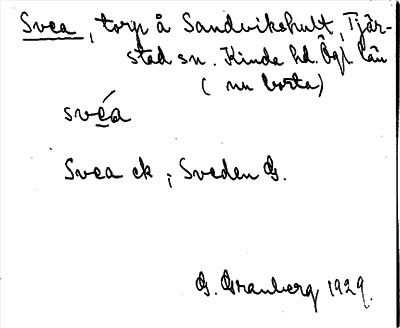 Svea, torp å Sandvikshult, Tjär-
stad sn. Kinda hd. Ögl län
(nu borta)
svéa
Svea ek; Sveden G.
G. Granberg 1929.